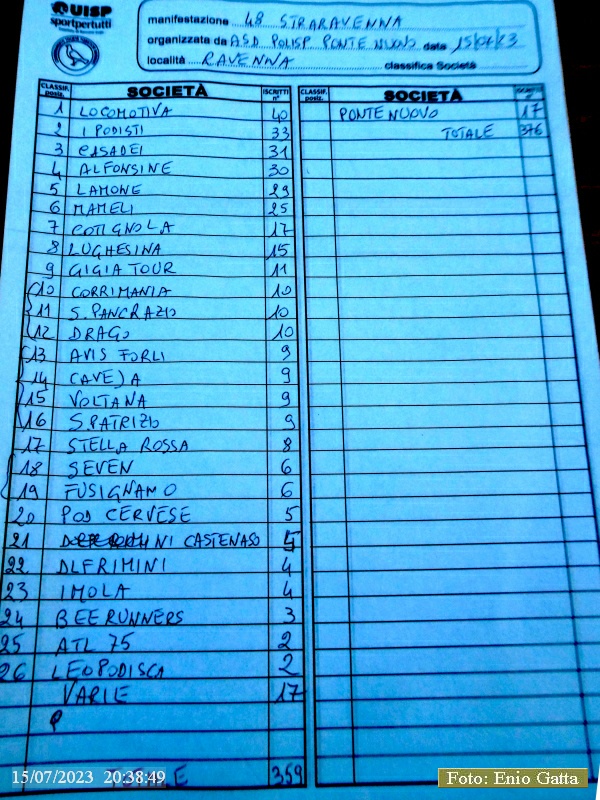 UISP
sportpertutti
manifestazione 48 STRARAVENNA
organizzata da ASD POLISP PONTE NUOVO data 15/07/23
località RAVENNA classifica Società
CLASSIF. posiz. SOCIETÀ ISCRITTI n°
1 LOCOMOTIVA 40
2 I PODISTI 33
3 CASADEI 31
4 ALFONSINE 30
5 LAMONE 29
6 MAMELI 25
7 COTIGNOLA 17
8 LUGHESINA 15
9 GIGIA TOUR 11
10 CORRIMANIA 10
11 S. PANCRAZIO 10
12 DRAGO 10
13 AVIS FORLI 9
14 CAVEJA 9
15 VOLTANA 9
16 S.PATRIZIO 9
17 STELLA ROSSA 8
18 SEVEN 6
19 FUSIGNANO 6
20 POD CERVESE 5
21 INI CASTENASO
22 DLF RIMINI 4
23 IMOLA 4
24 BEERUNNERS 3
25 ATL 75 2
26 LEOPODISCA 2
VARIE 17
TOTALE 359
CLASSIF. posiz. SOCIETÀ ISCRITTI n°
PONTE NUOVO 17
TOTALE 376
15/07/2023 20:38:49
Foto: Enio Gatta